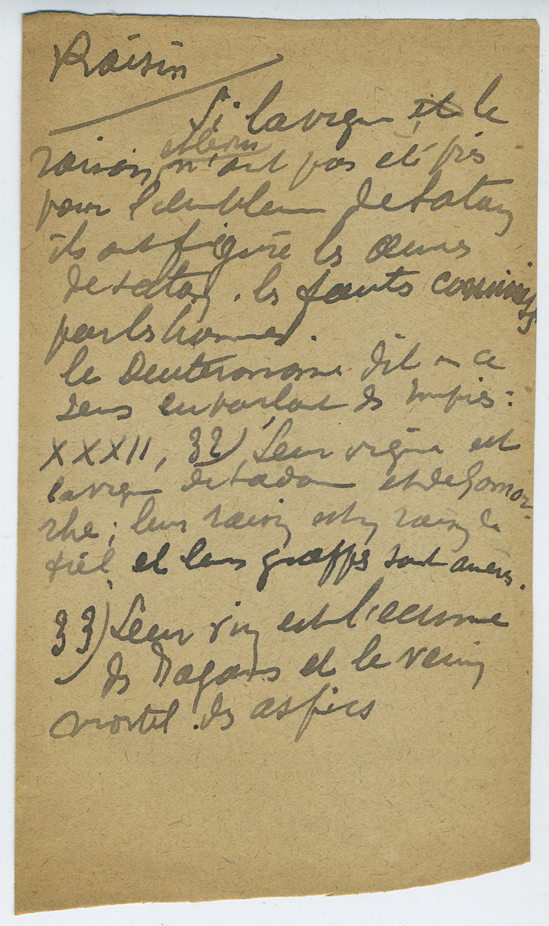 Raisin
Si la vigne et le
raisin et le vin n'ont pas été pris
pour l'emblème de Satan
ils ont figuré les œuvres
de Satan, les fautes commises
par les hommes.
le Deuteronome dit en ce
sens en parlant des impies :
XXXII, 32) Leur vigne est
la vigne de Sadome et de Gomor-
rhe ; leur raisin est un raisin de
fiel et leurs grappes sont amères.
33) Leur vin est l'écume
des Dragons et le venin
mortel des aspics